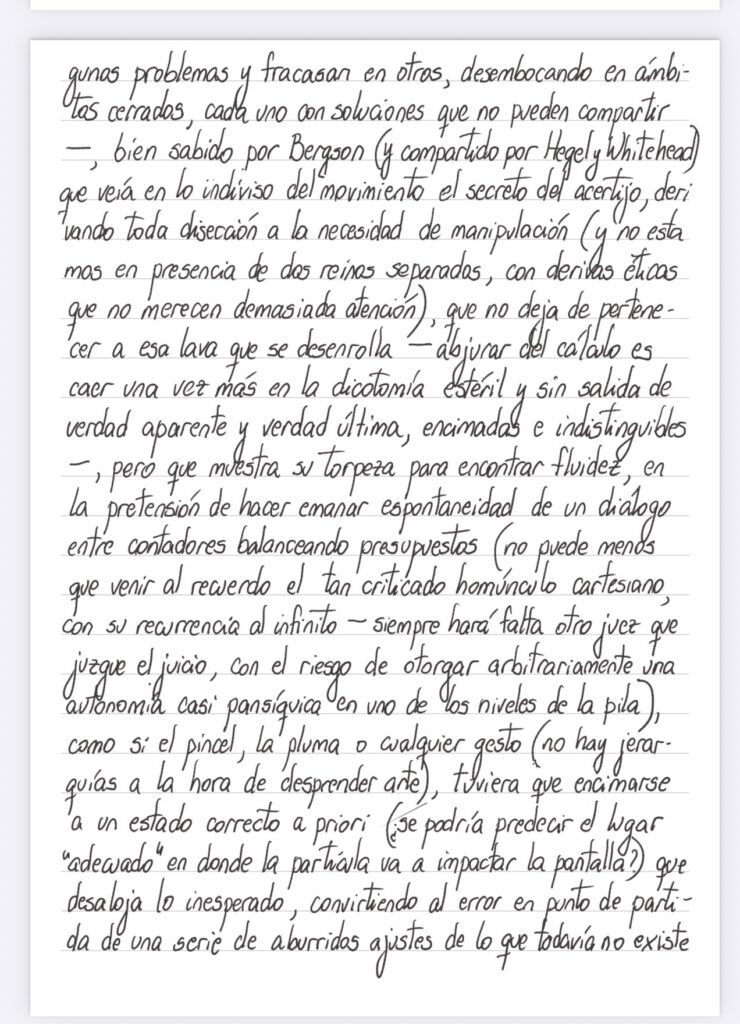 gunos problemas y fracasan en otros, desembocando en ámbi-
tos cerrados, cada uno con soluciones que no pueden compartir
—, bien sabido por Bergson (y compartido por Hegel y Whitehead)
que veía en lo indiviso del movimiento el secreto del acertijo, deri
vando toda disección a la necesidad de manipulación (y no esta
mos en presencia de dos reinos separados, con derivas éticas
que no merecen demasiada atención), que no deja de pertene-
cer a esa lava que se desenrolla — abjurar del cálculo es
caer una vez más en la dicotomía estéril y sin salida de
verdad aparente y verdad última, encimadas e indistinguibles
—, pero que muestra su torpeza para encontrar fluidez, en
la pretensión de hacer emanar espontaneidad de un diálogo
entre contadores balanceando presupuestos (no puede menos
que venir al recuerdo el tan criticado homúnculo cartesiano,
con su recurrencia al infinito — siempre hará falta otro juez que
juzgue el juicio, con el riesgo de otorgar arbitrariamente una
autonomía casi pansíquica en uno de los niveles de la pila),
como si el pincel, la pluma o cualquier gesto (no hay jerar-
quías a la hora de desprender arte), tuviera que encimarse
a un estado correcto a priori (¿se podría predecir el lugar
"adecuado" en donde la partícula va a impactar la pantalla?) que
desaloja lo inesperado, convirtiendo al error en punto de parti-
da de una serie de aburridos ajustes de lo que todavía no existe